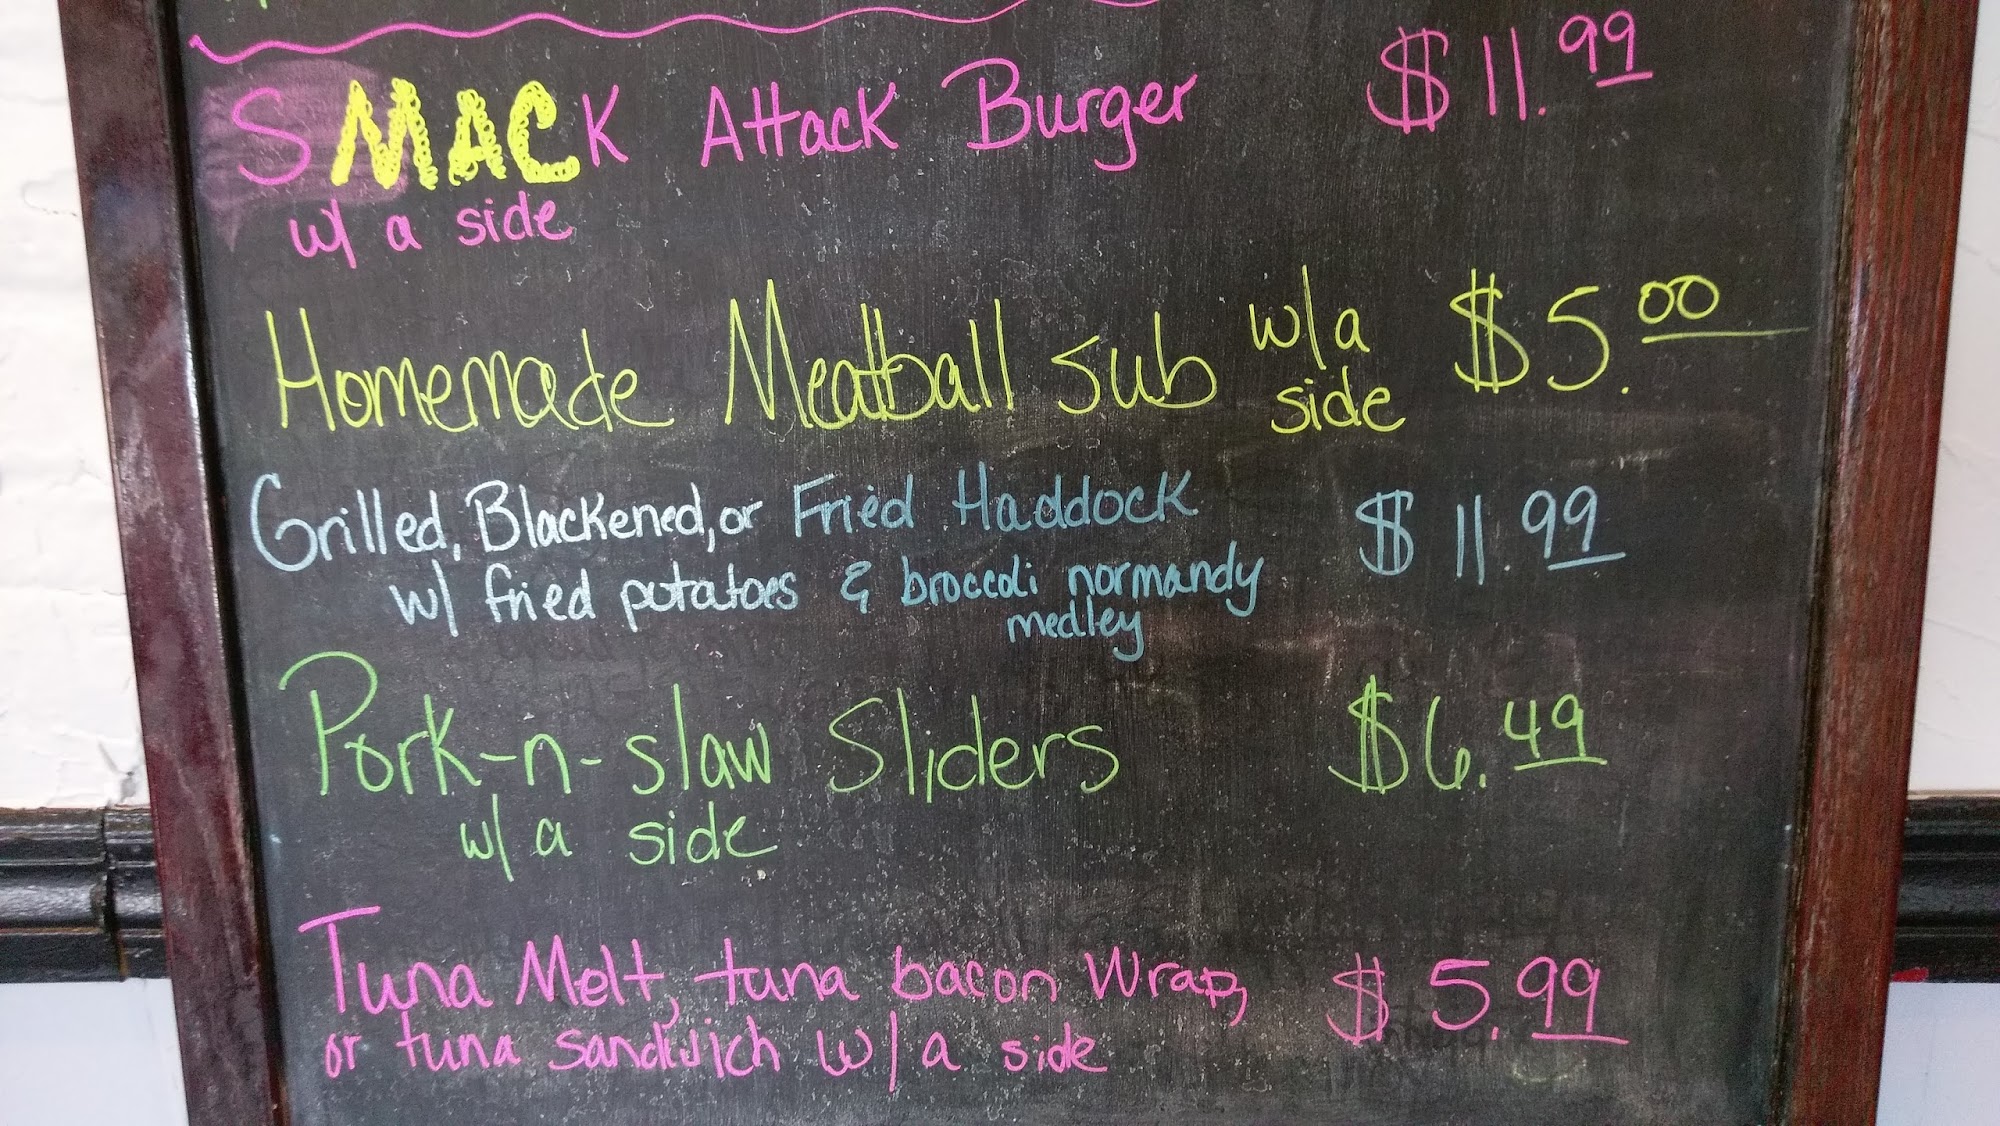 SMACK Attack Burger $11.99
w/ a side
Homemade Meatball sub w/a side $5.00
Grilled, Blackened, or Fried Haddock $11.99
w/ fried potatoes & broccoli normandy
medley
Pork-n-slaw Sliders $6.49
w/ a side
Tuna Melt, tuna bacon Wrap, $5.99
or tuna sandwich w/a side